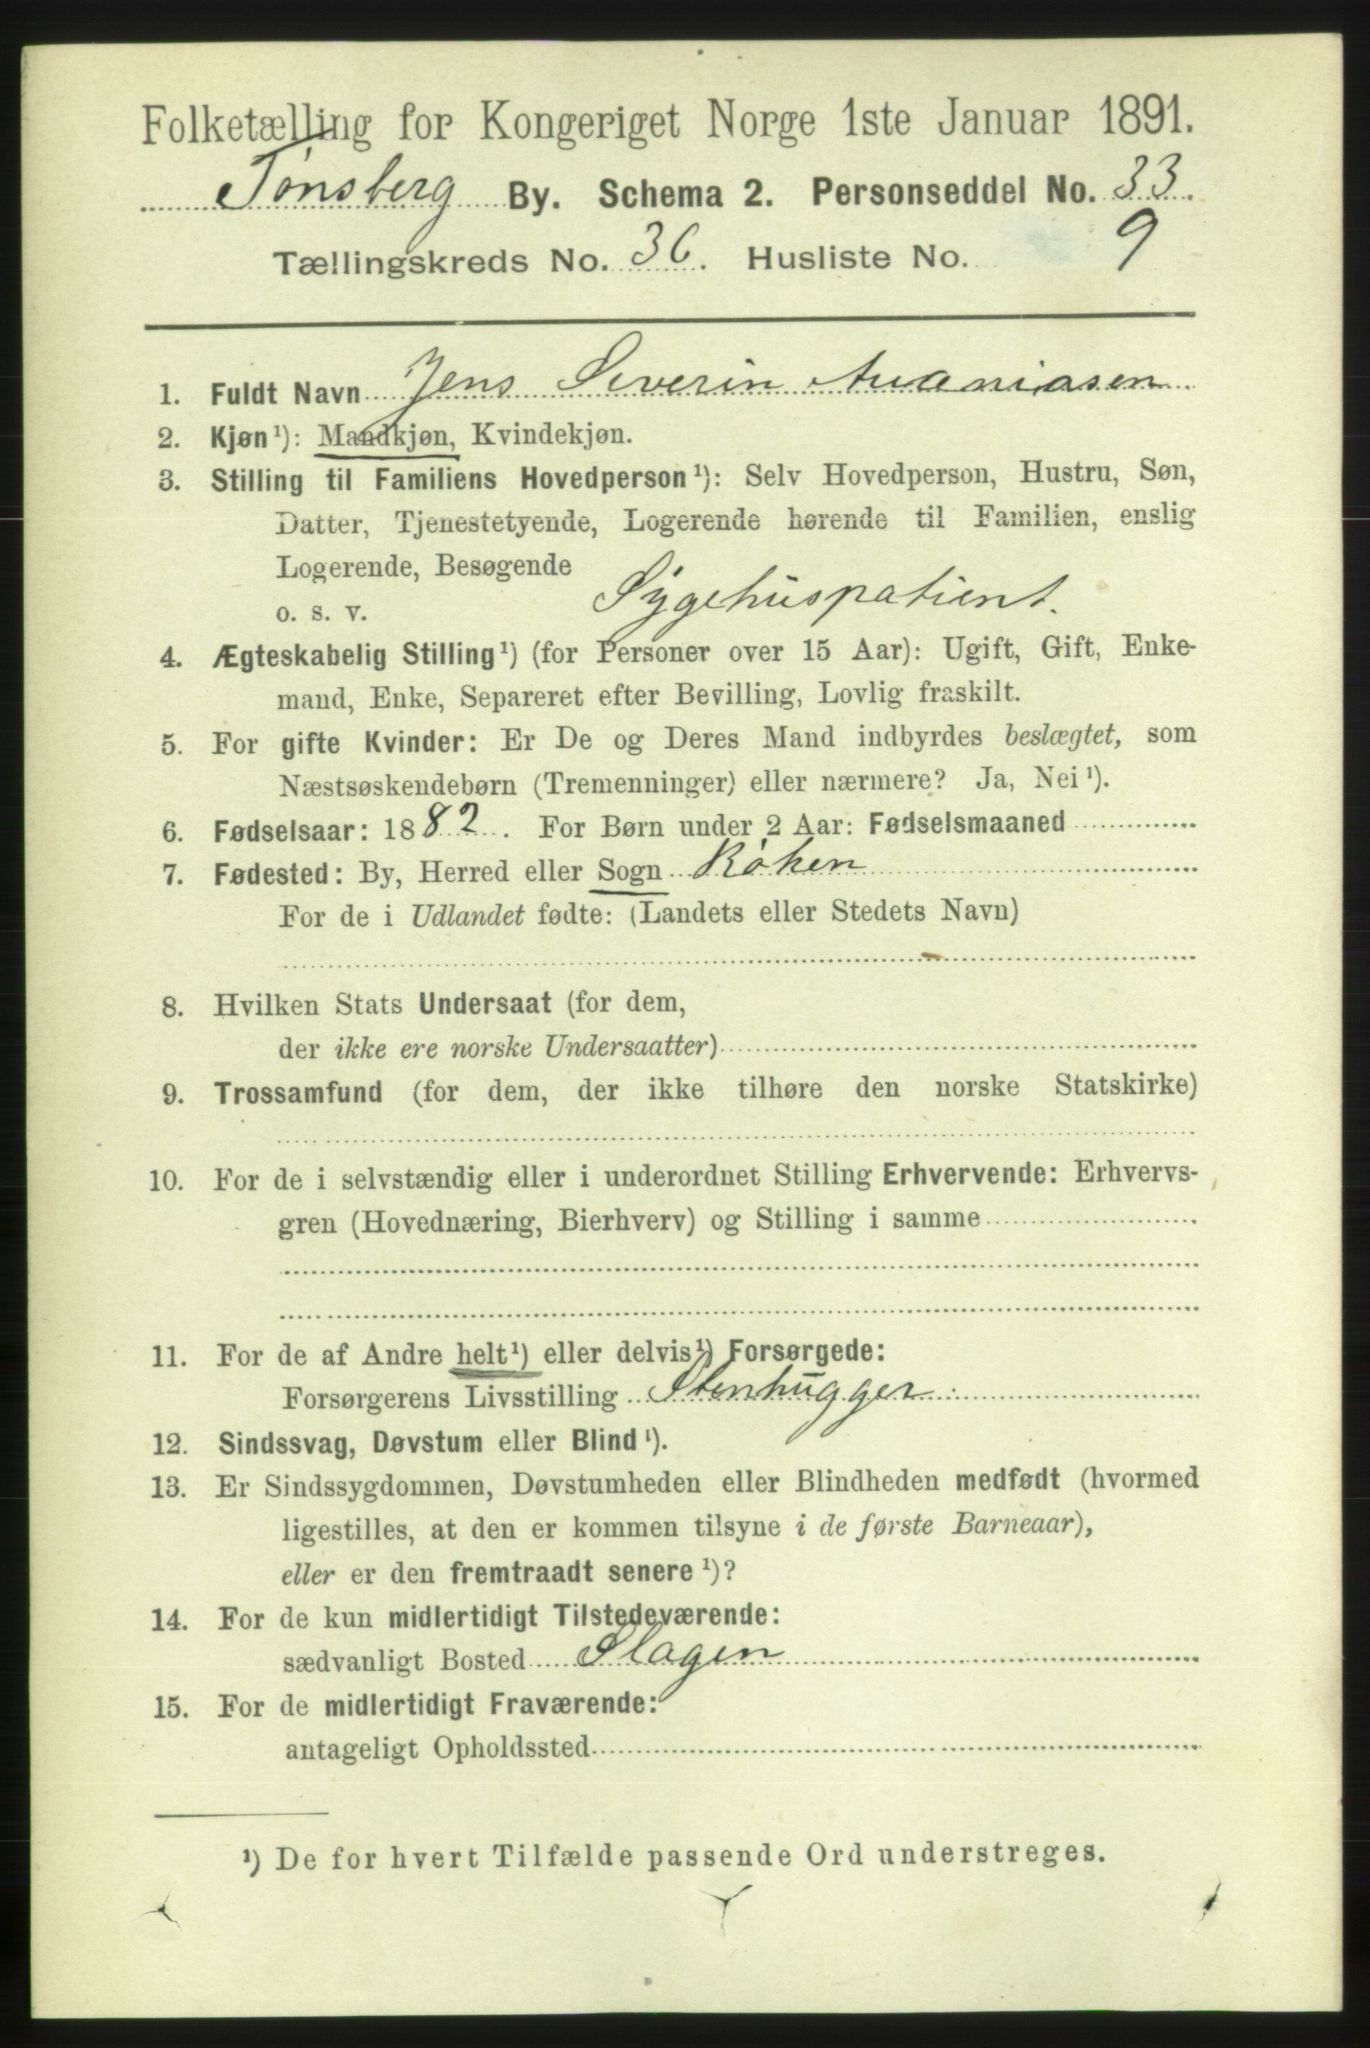 Folketælling for Kongeriget Norge 1ste Januar 1891.
Tønsberg By. Schema 2. Personseddel No. 33.
Tællingskreds No. 36. Husliste No. 9
1. Fuldt Navn Jens Severin Ananiasen
2. Kjøn¹): Mandkjøn, Kvindekjøn.
3. Stilling til Familiens Hovedperson¹): Selv Hovedperson, Hustru, Søn,
Datter, Tjenestetyende, Logerende hørende til Familien, enslig
Logerende, Besøgende
o. s. v. Sygehuspatient.
4. Ægteskabelig Stilling¹) (for Personer over 15 Aar): Ugift, Gift, Enke-
mand, Enke, Separeret efter Bevilling, Lovlig fraskilt.
5. For gifte Kvinder: Er De og Deres Mand indbyrdes beslægtet, som
Næstsøskendebørn (Tremenninger) eller nærmere? Ja, Nei¹).
6. Fødselsaar: 1882. For Børn under 2 Aar: Fødselsmaaned
7. Fødested: By, Herred eller Sogn Røken
For de i Udlandet fødte: (Landets eller Stedets Navn)
8. Hvilken Stats Undersaat (for dem,
der ikke ere norske Undersaatter)
9. Trossamfund (for dem, der ikke tilhøre den norske Statskirke)
10. For de i selvstændig eller i underordnet Stilling Erhvervende: Erhvervs-
gren (Hovednæring, Bierhverv) og Stilling i samme
11. For de af Andre helt¹) eller delvis¹) Forsørgede:
Forsørgerens Livsstilling Stenhugger.
12. Sindssvag, Døvstum eller Blind¹).
13. Er Sindssygdommen, Døvstumheden eller Blindheden medfødt (hvormed
ligestilles, at den er kommen tilsyne i de første Barneaar),
eller er den fremtraadt senere¹)?
14. For de kun midlertidigt Tilstedeværende:
sædvanligt Bosted Slagen
15. For de midlertidigt Fraværende:
antageligt Opholdssted
¹) De for hvert Tilfælde passende Ord understreges.